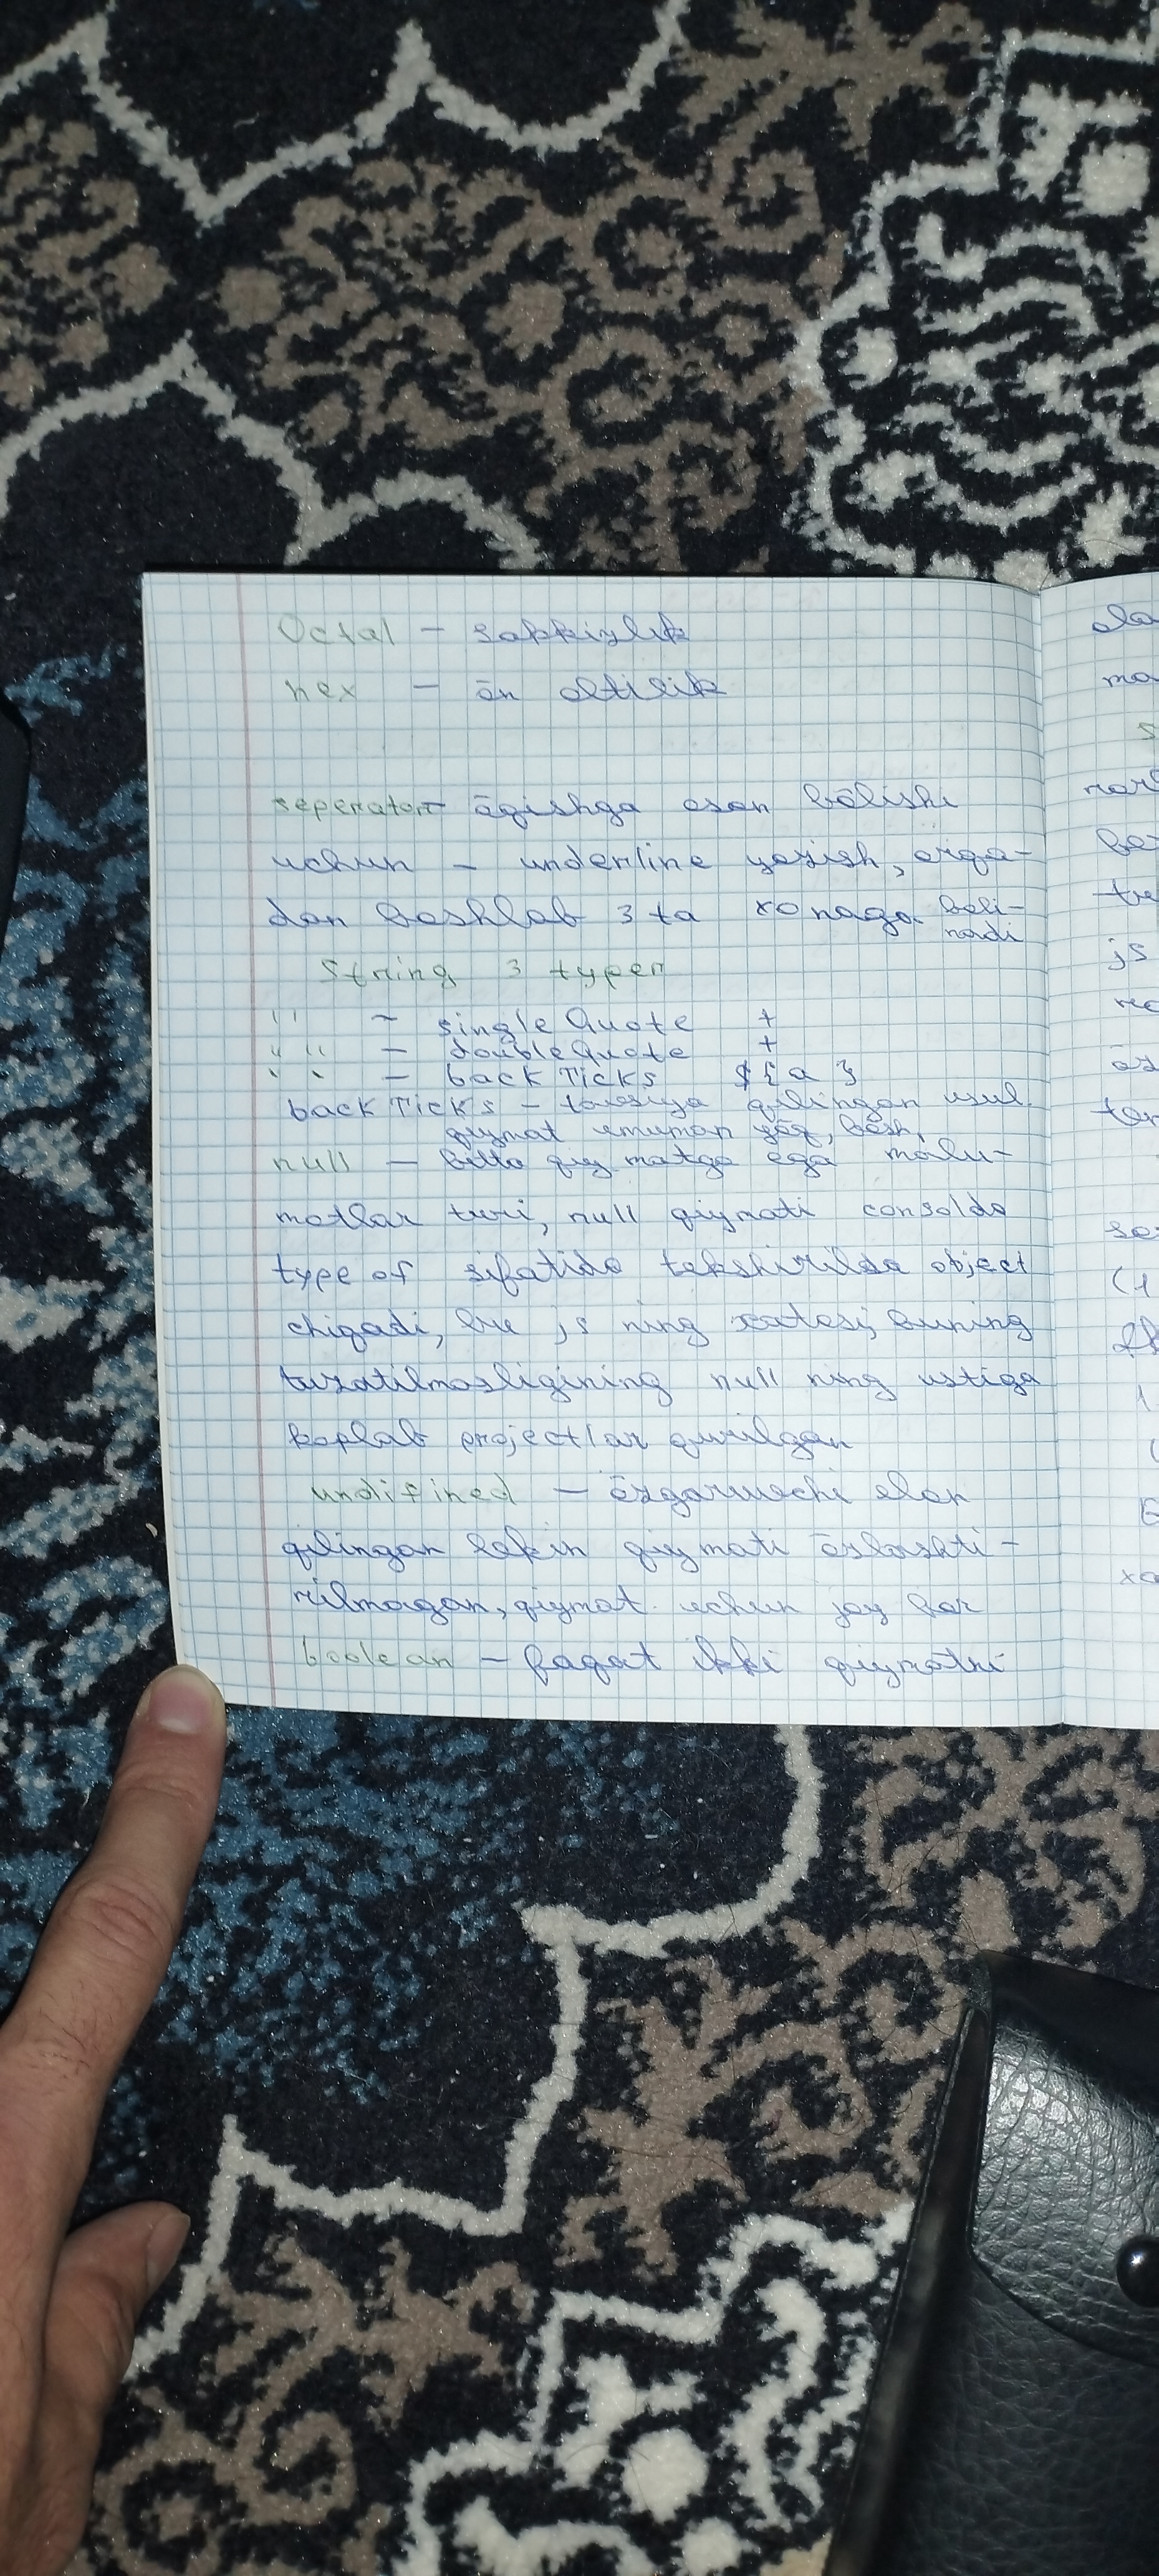 Octal – sakkizlik
hex – ōn oltilik
seperator – ōqishga oson bōlishi
uchun – underline yozish, orqa-
dan boshlab 3 ta xonaga bōli-
nadi
String 3 typer
' ' – single Quote +
" " – double Quote +
` ` – back Ticks ${a}
back Ticks – tavsiya qilingan usul.
qiymat umuman yōq, bōsh,
null – bitta qiymatga ega malu-
motlar turi, null qiymati consolda
type of sifatida tekshirilsa object
chiqadi, bu js ning xatosi, buning
tuzatilmasligining null ning ustiga
koplab projectlar qurilgan
undifined – ōzgaruvchi elon
qilingan lekin qiymati ōzlashti-
rilmagan, qiymat uchun joy bor
boolean – faqat ikki qiymatni
js